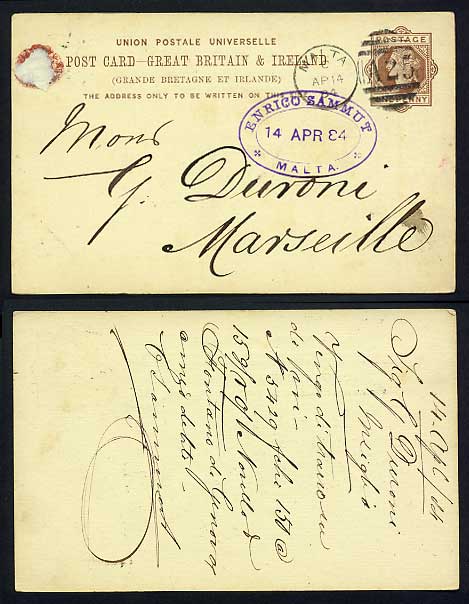 UNION POSTALE UNIVERSELLE
POST CARD—GREAT BRITAIN & IRELAND
(GRANDE BRETAGNE ET IRLANDE)
THE ADDRESS ONLY TO BE WRITTEN ON THIS
POSTAGE
ONE PENNY
MALTA
AP 14
84
A 25
ENRICO SAMMUT
14 APR 84
MALTA
Mons
G. Duroni
Marseille
14 Apl /84
Sig G Duroni
Vengo di trarre su
di voi
fchi 151
di Genova
E Sammut